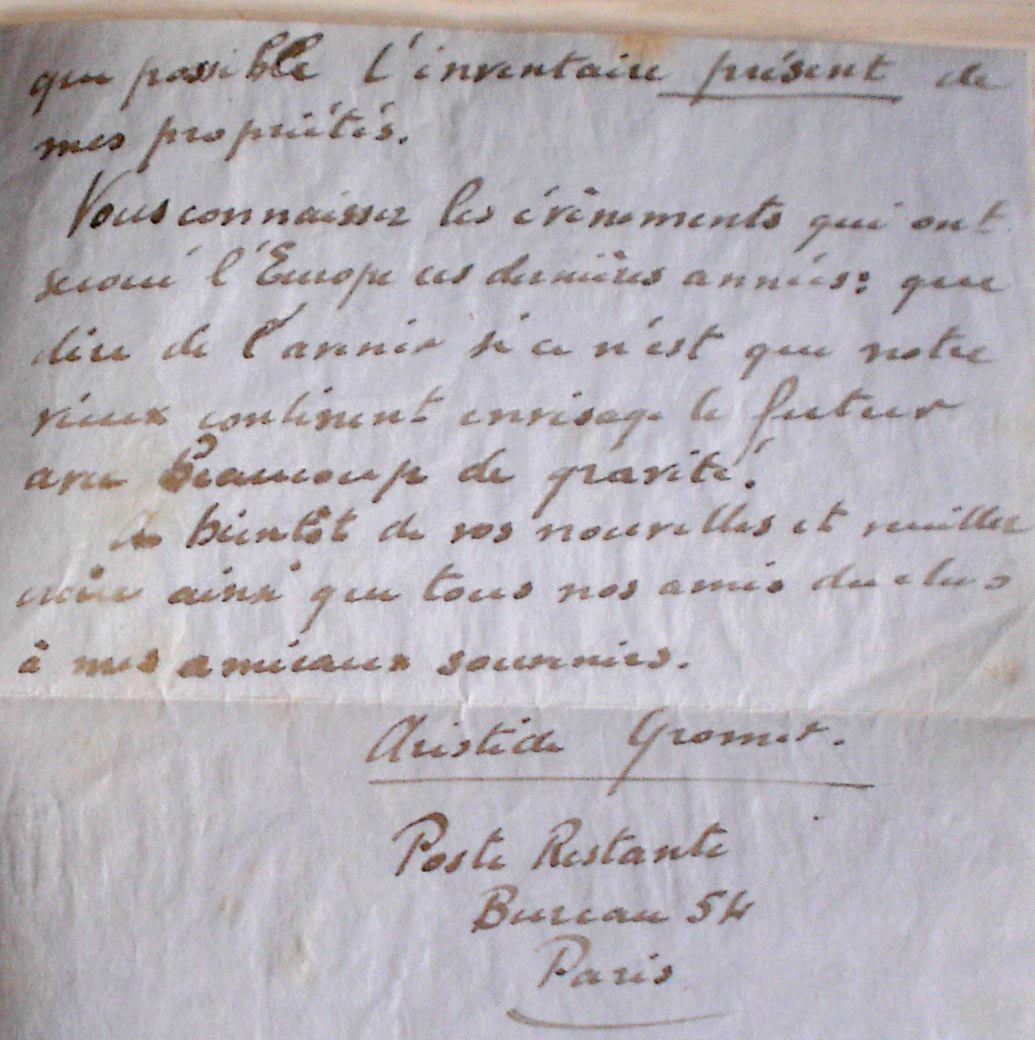 que possible l'inventaire présent de
mes propriétés.
Vous connaissez les évènements qui ont
secoué l'Europe ces dernières années: que
dire de l'avenir si ce n'est que notre
vieux continent envisage le futur
avec beaucoup de gravité!
A bientôt de vos nouvelles et veuillez
croire ainsi que tous nos amis du club
à mes amicaux souvenirs.
Aristide Gromer.
Poste Restante
Bureau 54
Paris